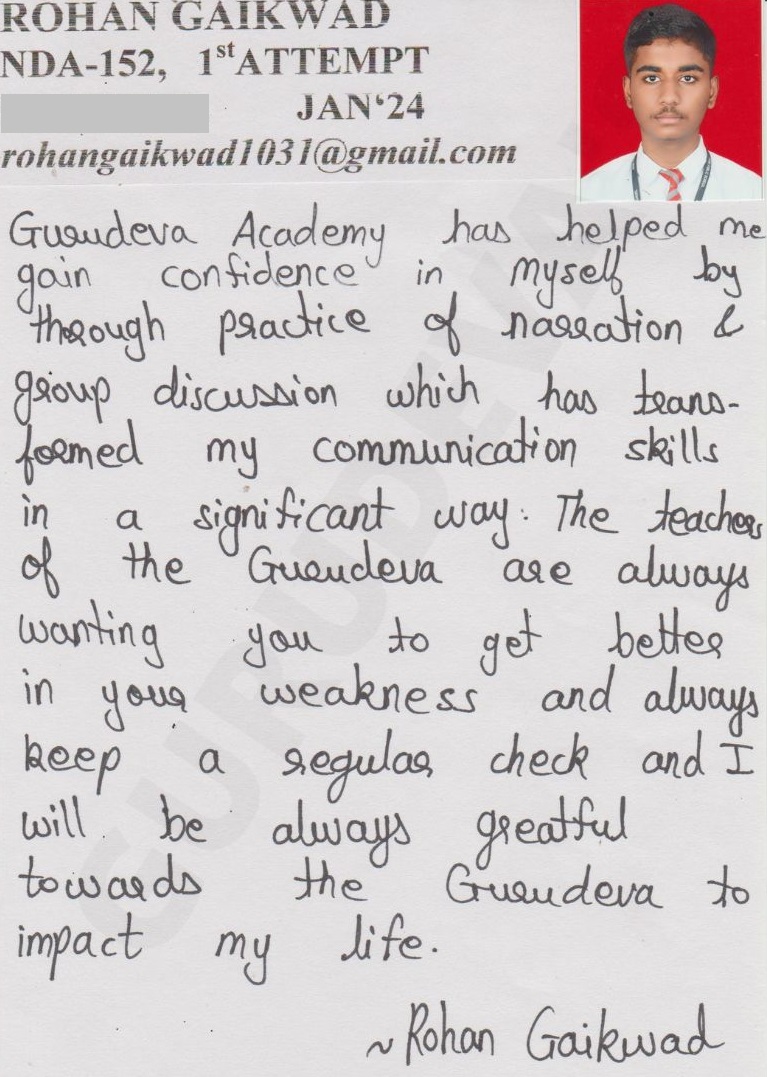 ROHAN GAIKWAD
NDA-152, 1st ATTEMPT
JAN‘24
rohangaikwad1031@gmail.com
Gurudeva Academy has helped me
gain confidence in myself by
through practice of narration &
group discussion which has trans-
formed my communication skills
in a significant way. The teachers
of the Gurudeva are always
wanting you to get better
in your weakness and always
keep a regular check and I
will be always greatful
towards the Gurudeva to
impact my life.
~Rohan Gaikwad
GURUDEVA